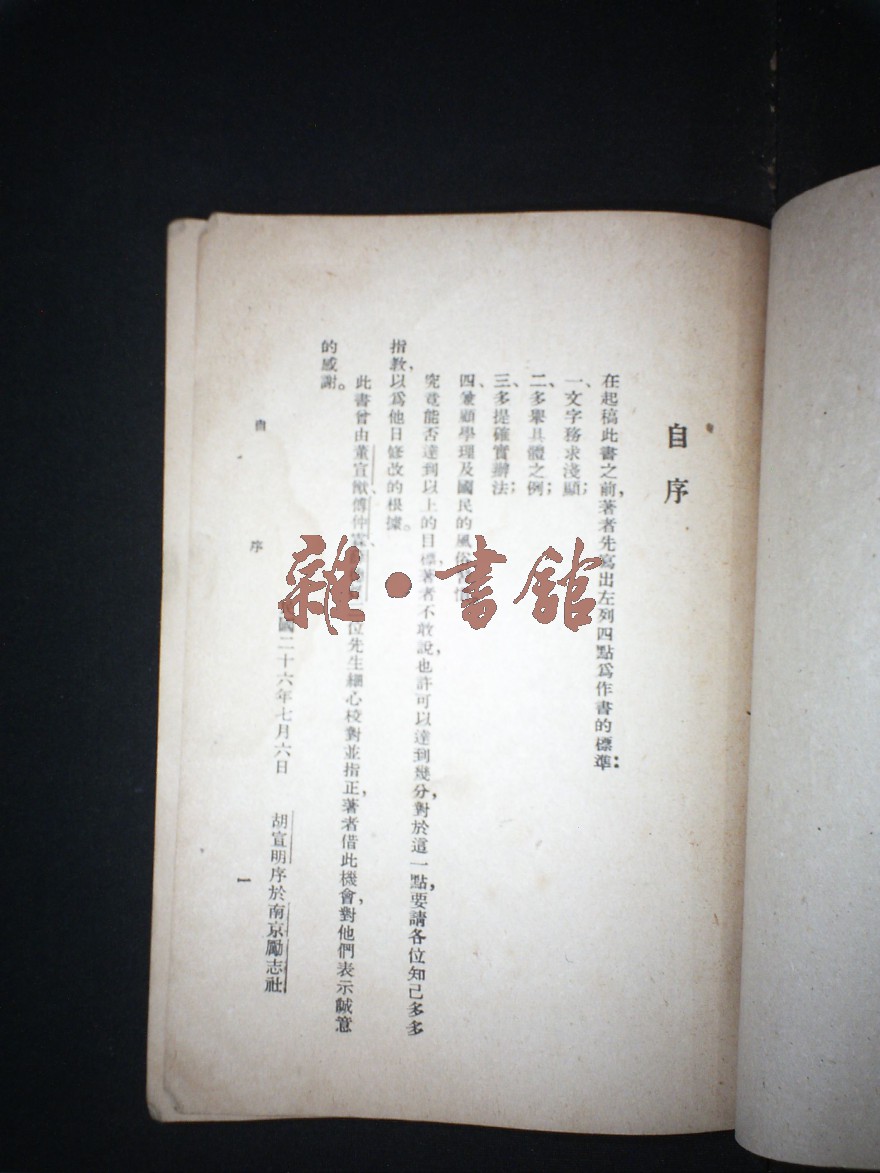 自序
在起稿此書之前，著者先寫出左列四點爲作書的標準：
一、文字務求淺顯；
二、多舉具體之例；
三、多提確實辦法；
四、兼顧學理及國民的風俗習慣
究竟能否達到以上的目標，著者不敢說，也許可以達到幾分，對於這一點，要請各位知己多多
指教，以爲他日修改的根據。
此書曾由董宣猷、傅仲霖、位先生細心校對並指正，著者借此機會，對他們表示誠意
的感謝。
國二十六年七月六日 胡宣明序於南京勵志社
自序
一
雜·書館